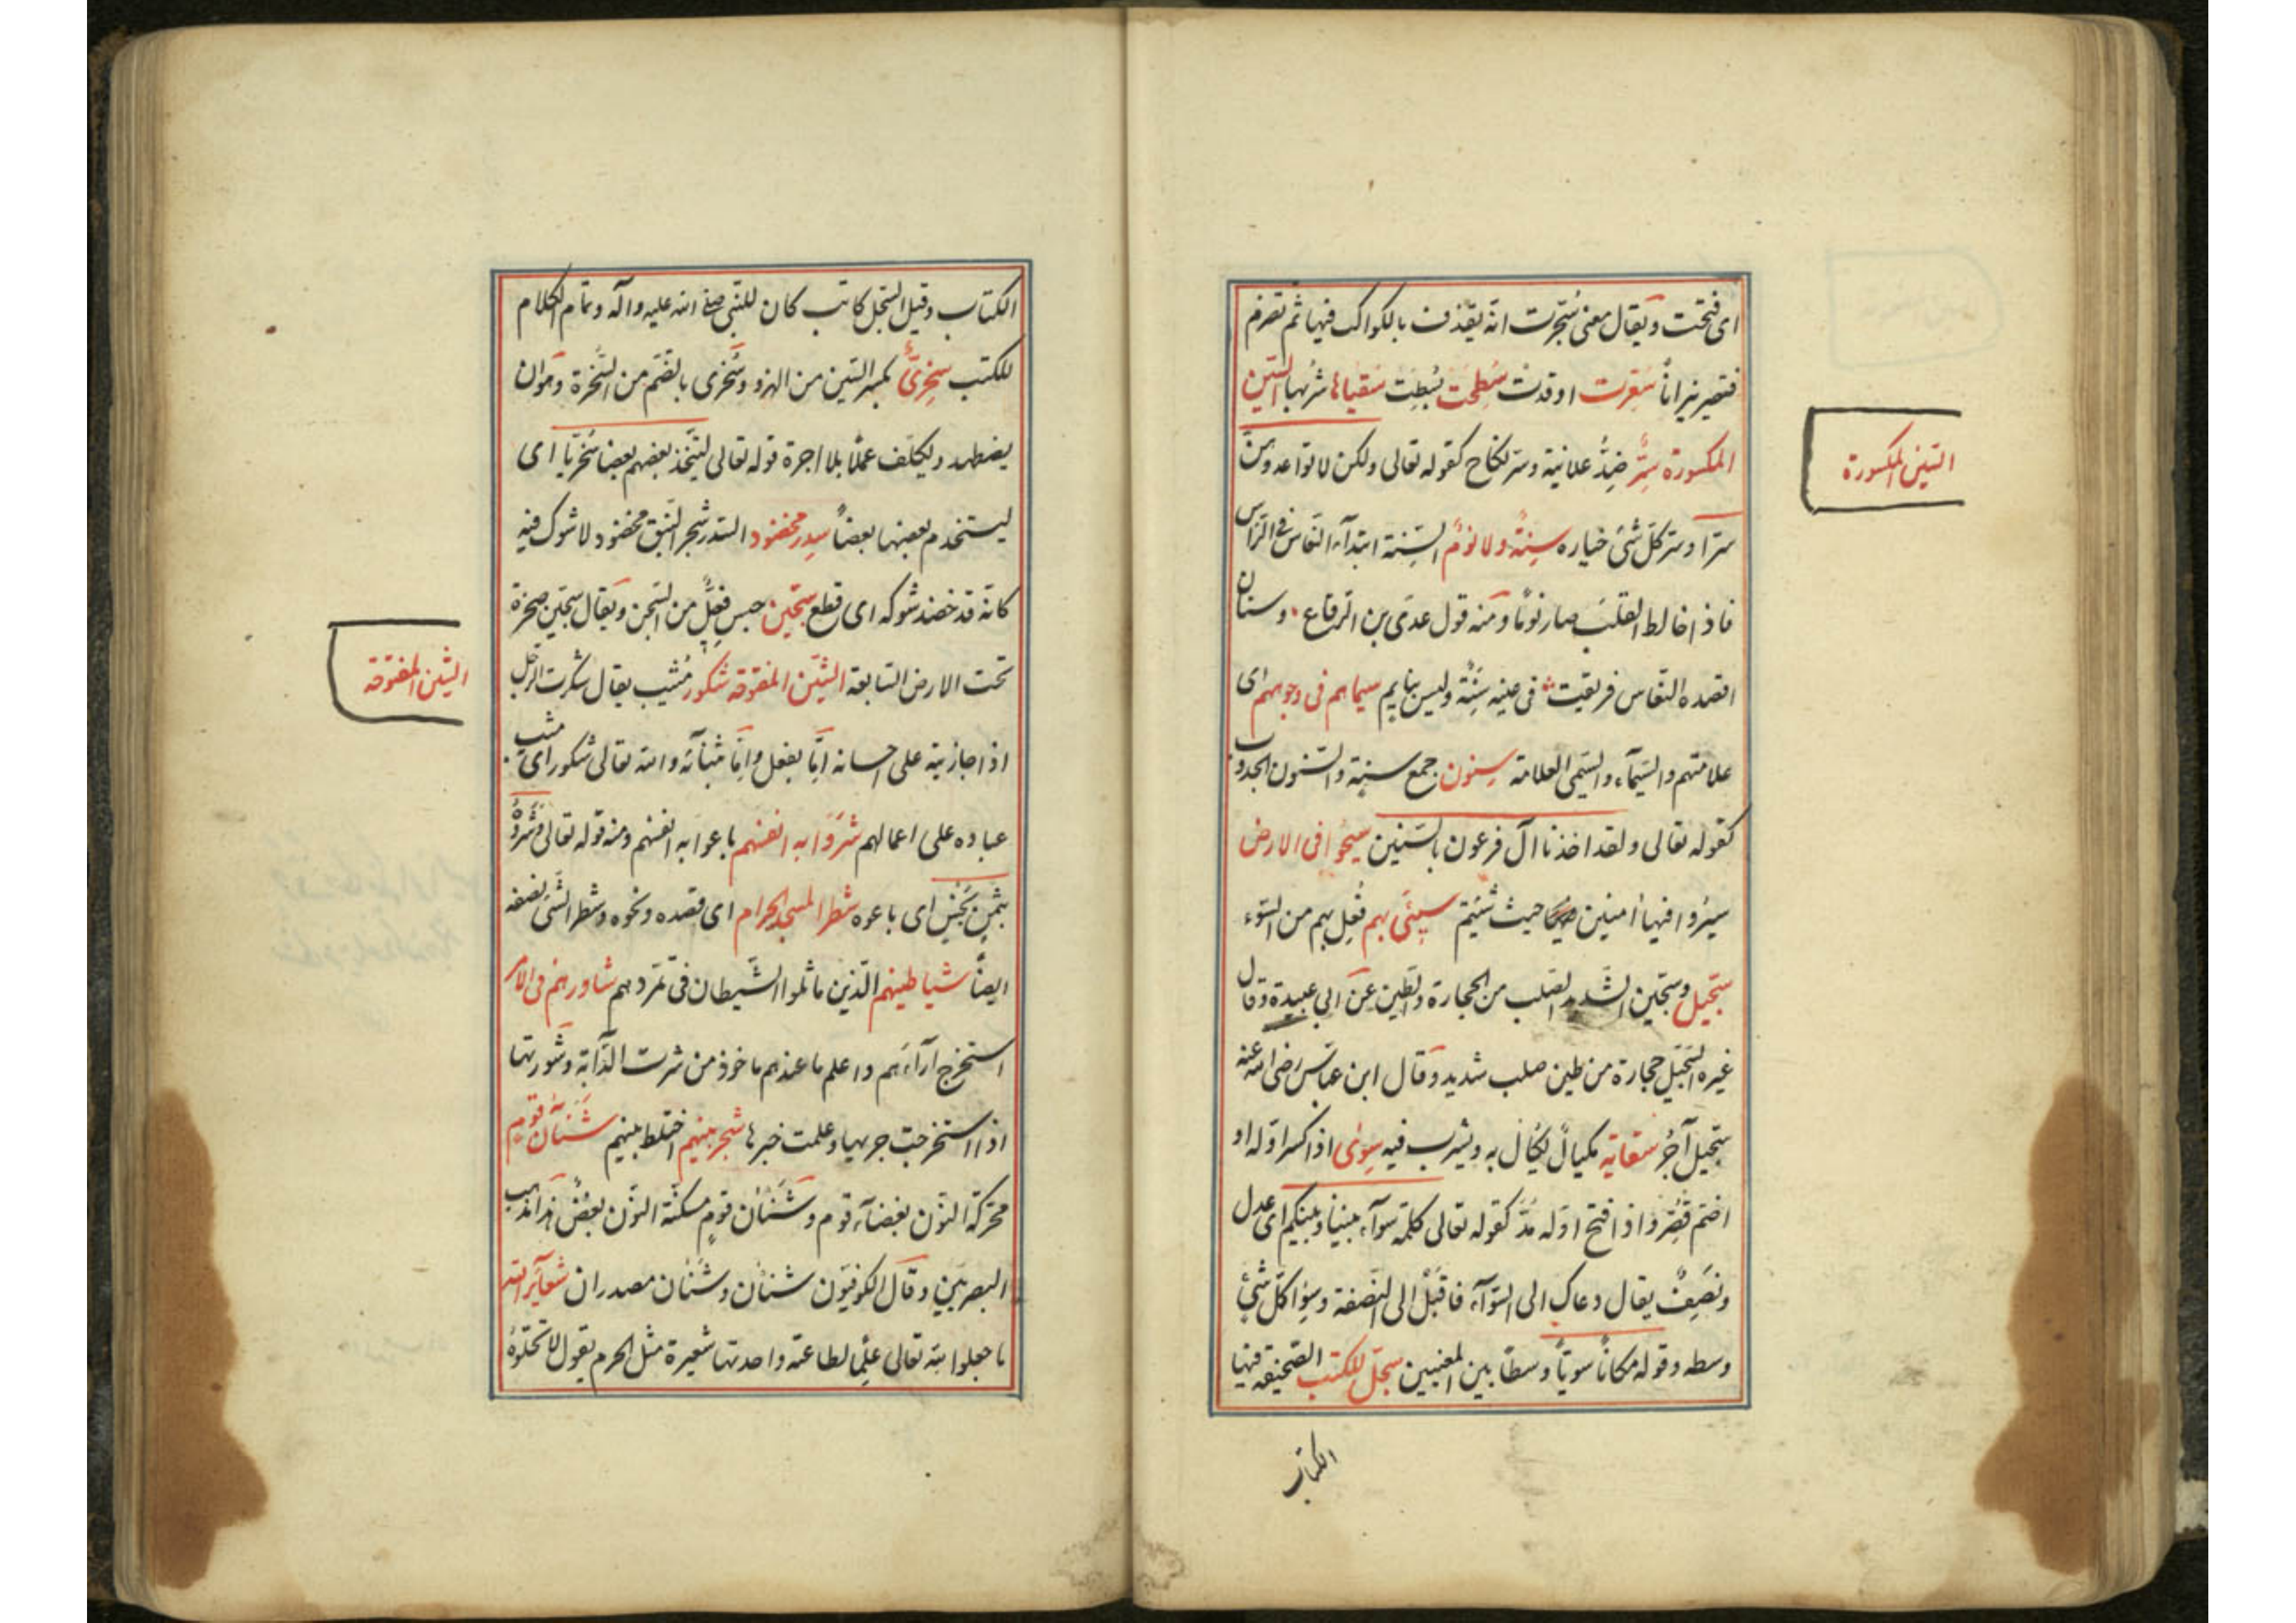 ای فتحت ویقال معنی سُجّرت انّه یقذف بالکواکب فیها ثم تضرم
فتصیر نیراناً سُعِّرت اوقدت سُطِحَت بُسِطِت سُقیاها شربها السّین
المکسورة سِرٌّ ضِدُّ علانیة وسرّ نکاح کقوله تعالی ولکن لا تواعدوهنّ
سرّا وسرّ کلّ شئ خیاره سِنةٌ ولا نومٌ السِّنة ابتدآء النعاس فی الرّاس
فاذا خالط القلبَ صار نومًا ومنه قول عدی بن الرقاع وسنان
اقصده النعاس فرنقت فی عینه سِنَةٌ ولیس بنایم سیماهم فی وجوههم ای
علامتهم والسّیمآء والسّیمی العلامة سِنون جمع سنة والسّنون الجدوب
کقوله تعالی ولقد اخذنا آل فرعون بالسّنین سیحُوا فی الارض
سیرُوا فیها اٰمنین حیث شئتم سیٓئَ بهم فُعِل بهم من السّوء
سجّیل وسجّین الشدید الصّلب من الحجارة والطین عن ابی عبیدة وقال
غیره السّجّیل حجارة من طین صلب شدید وقال ابن عبّاس رضی الله عنه
سجّیل آجُرّ سقایة مکیالٌ یُکٰال به ویشرب فیه سِوٰی اذا کسر اوّله او
اضمّ قُصِر واذا فتح اوّله مُدَّ کقوله تعالی کلمة سوآء بیننا وبینکم ای عدل
ونَصَفٌ یقال دعاک الی السّوآء فاقبَل الی النّصفة وسِوٰا کلّ شئ
وسطه وقوله مکاناً سویًّ وسطًا بین المعنیین سجلّ للکتب الصّحیفة فیها
الکتاب
السّین المکسورة
الکتاب وقیل السّجل کاتب کان للنّبی صلی الله علیه وآله وتمام الکلام
للکتب سِخریٌّ بکسر السّین من الهزو وسُخری بالضّم من السّخرة وهو ان
یضطهد ویکلّف عملًا بلا اجرة قوله تعالی لیتّخذ بعضهم بعضًا سُخریًّا ای
لیستخدم بعضها بعضاً سِدر مخضود السّدر شجر النّبق مخضود لا شوک فیه
کانّه قد خضد شوکه ای قطع سجّین حبس فِعِّیلٌ من السّجن ویقال سجّین صخرة
تحت الارض السّابعة الشّین المفتوحة شکور مُثیب یقال شکرت الرّجل
اذا جازیته علی احسانه امّا بفعل وامّا بثنآء والله تعالی شکور ای مثیب
عباده علی اعمالهم شَرَوَا به انفسهم باعوا به انفسهم ومنه قوله تعالی وَشَرَوْهُ
بثَمَنٍ بَخْسٍ ای باعوه شطر المسجد الحرام ای قصده ونحوه وشطر الشّئ نصفه
ایضاً شیاطینهم الّذین ماثلوا الشّیطان فی تمرّدهم شاورهم فی الامر
استخرج آرآءهم واعلم ما عندهم ماخوذ من شرت الدّآبة وشوّرتها
اذا استخرجت جریها وعلمت خبرها شجر بینهم اختلط بینهم شَنَآنُ قَومٍ
محرّکة النّون بغضآء قوم وشَنْاٰن قومٍ مسکّنة النّون بغضُ هذا مذهب
البصریّین وقال الکوفیّون شَنَاٰن وشَنْاٰن مصدران شعآئر الله
ما جعله الله تعالی علمًا لطاعته واحدتها شعیرة مثل الحرم یقول لا تحلّوهُ
الشّین المفتوحة